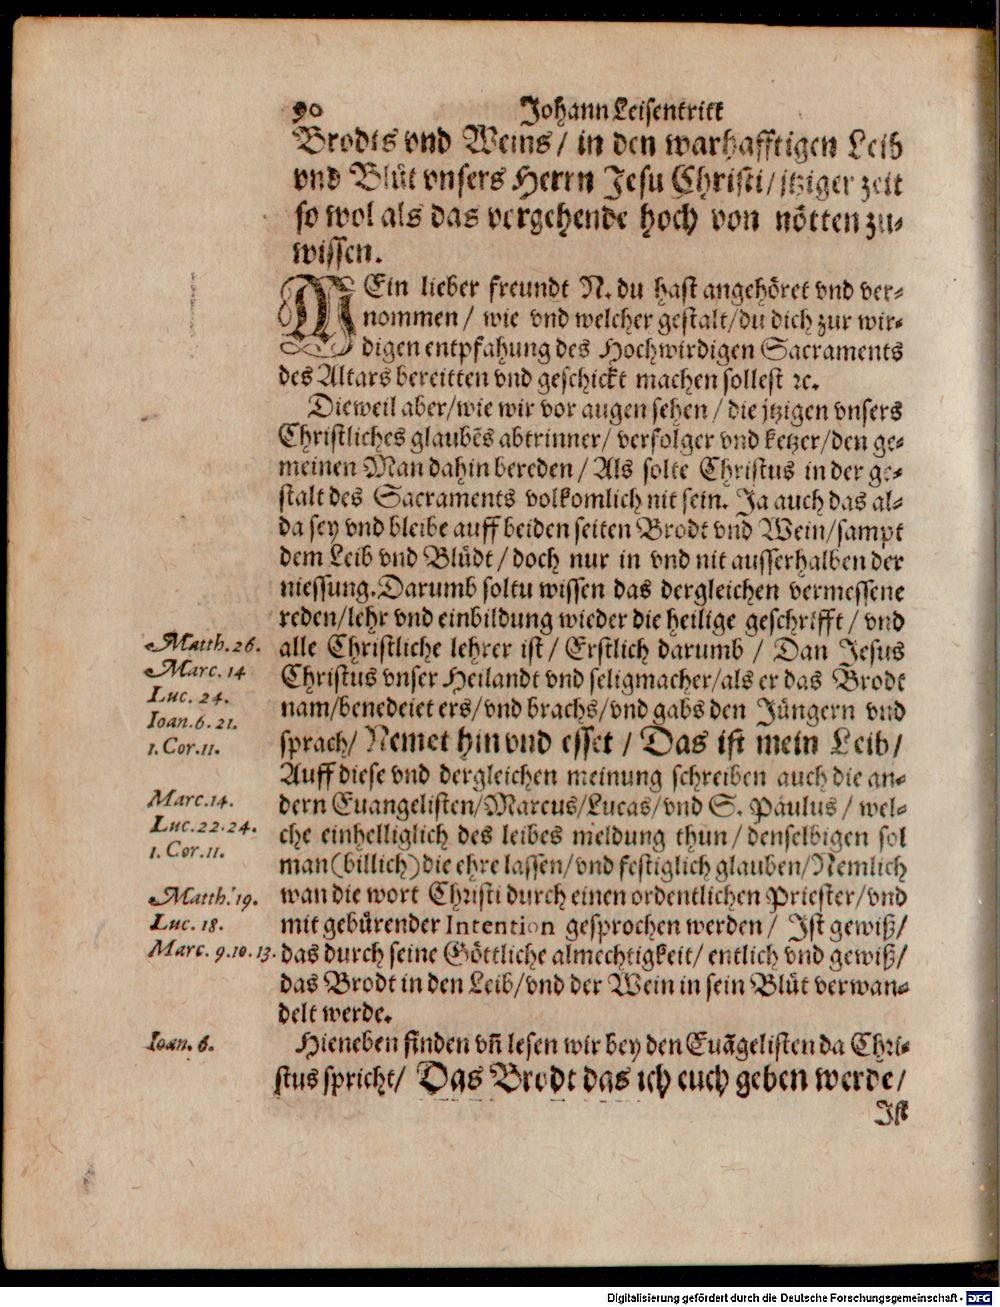 90 Johann Leisentritt
Brodts vnd Weins / in den warhafftigen Leib
vnd Blůt vnsers Herrn Jesu Christi / jtziger zeit
so wol als das vergehende hoch von nötten zu-
wissen.
MEin lieber freundt N. du hast angehöret vnd ver-
nommen / wie vnd welcher gestalt / du dich zur wir-
digen entpfahung des Hochwirdigen Sacraments
des Altars bereitten vnd geschickt machen sollest ꝛc.
Dieweil aber / wie wir vor augen sehen / die jtzigen vnsers
Christliches glaubēs abtrinner / verfolger vnd ketzer / den ge-
meinen Man dahin bereden / Als solte Christus in der ge-
stalt des Sacraments volkomlich nit sein. Ja auch das al-
da sey vnd bleibe auff beiden seiten Brodt vnd Wein / sampt
dem Leib vnd Blůdt / doch nur in vnd nit ausserhalben der
niessung. Darumb soltu wissen das dergleichen vermessene
reden / lehr vnd einbildung wieder die heilige geschrifft / vnd
Matth. 26. alle Christliche lehrer ist / Erstlich darumb / Dan Jesus
Marc. 14 Christus vnser Heilandt vnd seligmacher / als er das Brodt
Luc. 24. nam / benedeiet ers / vnd brachs / vnd gabs den Jüngern vnd
Ioan. 6. 21.
1. Cor. 11. sprach / Nemet hin vnd esset / Das ist mein Leib /
Auff diese vnd dergleichen meinung schreiben auch die an-
Marc. 14. dern Euangelisten / Marcus / Lucas / vnd S. Paulus / wel-
Luc. 22. 24. che einhelliglich des leibes meldung thun / denselbigen sol
1. Cor. 11. man (billich) die ehre lassen / vnd festiglich glauben / Nemlich
Matth. 19. wan die wort Christi durch einen ordentlichen Priester / vnd
Luc. 18. mit gebürender Intention gesprochen werden / Ist gewiß /
Marc. 9. 10. 13. das durch seine Göttliche almechtigkeit / entlich vnd gewiß /
das Brodt in den Leib / vnd der Wein in sein Blůt verwan-
delt werde.
Ioan. 6. Hieneben finden vñ lesen wir bey den Euāgelisten da Chri-
stus spricht / Das Brodt das ich euch geben werde /
Ist
Digitalisierung gefördert durch die Deutsche Forschungsgemeinschaft - DFG